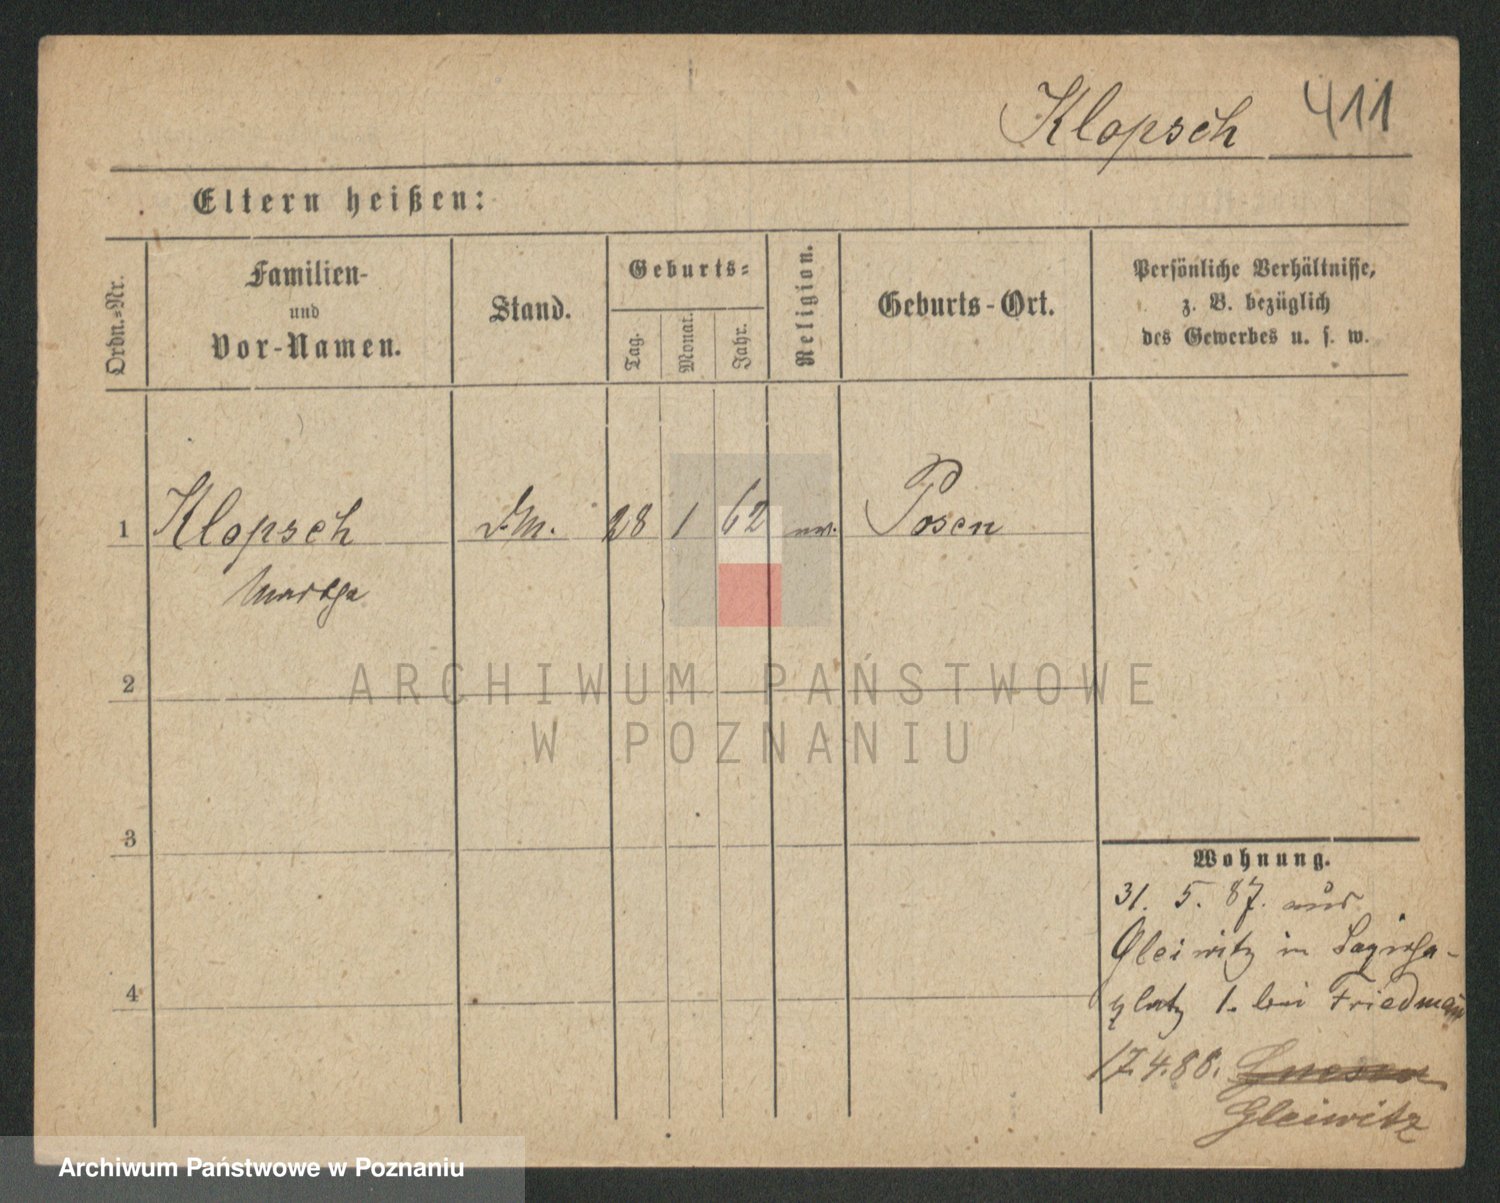 Klopsch 411
Eltern heißen:
Ordn.-Nr.
Familien-
und
Vor-Namen.
Stand.
Geburts-
Tag.
Monat.
Jahr.
Religion.
Geburts-Ort.
Persönliche Verhältnisse,
z. B. bezüglich
des Gewerbes u. s. w.
1 Klopsch 28 1 62 Posen
Martha
2
ARCHIWUM PAŃSTWOWE
W POZNANIU
3
Wohnung.
31. 5. 87. aus
Gleiwitz in Sapieha-
platz 1. bei Friedmann
4
17.4.88. Gnesen
Gleiwitz
Archiwum Państwowe w Poznaniu